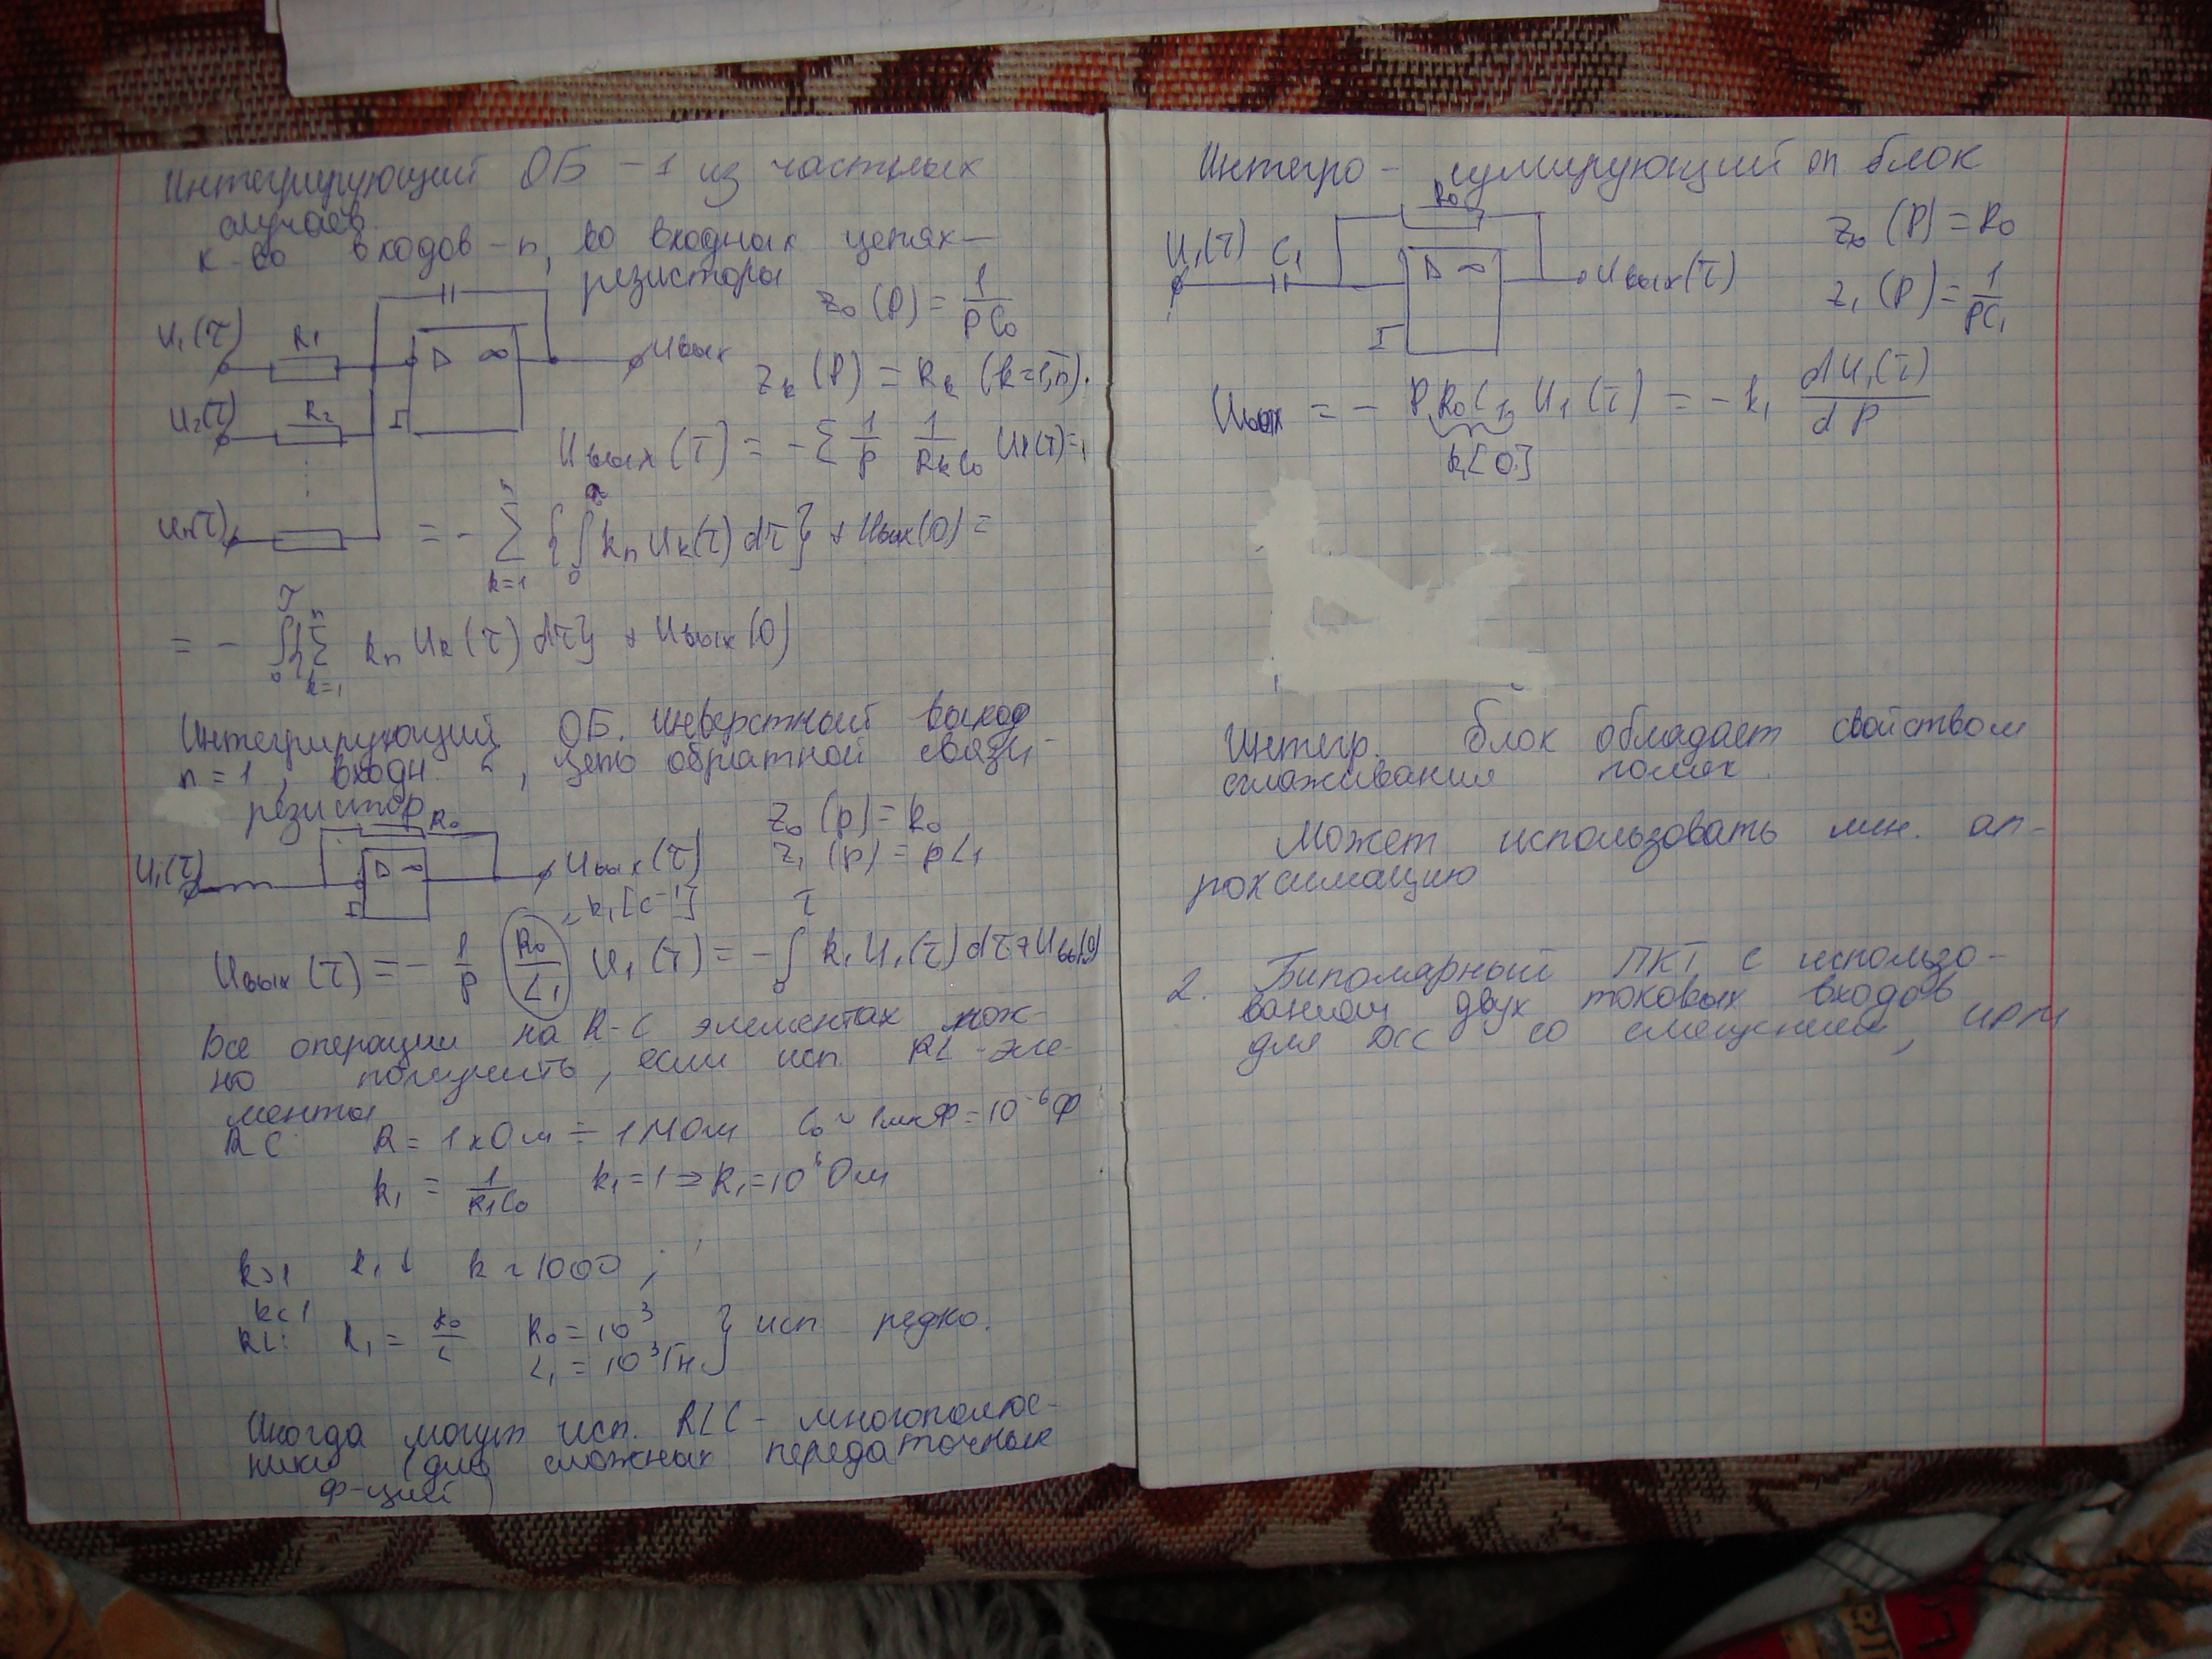 Интегрирующий ОБ – 1 из частных
случаев.
к-во входов – n, во входных цепях –
резисторы
U₁(τ) R₁
Uвых
Z₀(P) = 1/PC₀
D ∞
Zₖ(P) = Rₖ (k=1,n).
U₂(τ) R₂
I
Uвых(τ) = -Σ 1/P 1/RₖC₀ Uₖ(τ) =
Uₙ(τ)
= - Σ (k=1, n) {∫₀ kₙ Uₖ(τ) dτ} + Uвых(0) =
= - ∫₀^τ {Σ (k=1, n) kₙ Uₖ(τ) dτ} + Uвых(0)
Интегрирующий ОБ. Инверстный выход
n = 1, входн. L, цепь обратной связи –
резистор
R₀
Z₀(p) = R₀
Z₁(p) = pL₁
U₁(τ) D ∞ Uвых(τ)
I
= k₁[c⁻¹]
Uвых(τ) = - 1/P (R₀/L₁) U₁(τ) = -∫₀^τ k₁U₁(τ)dτ + Uвых(0)
Все операции на R-C элементах мож-
но получить, если исп. RL-эле-
менты
RC R = 1кОм ÷ 1МОм C₀ ~ 1мкФ = 10⁻⁶Ф
k₁ = 1/R₁C₀ k₁ = 1 ⇒ R₁ = 10⁶Ом
k>1 R₁↓ k ~ 1000;
k<1
RL: k₁ = R₀/L R₀ = 10³
L₁ = 10³Гн } исп редко.
Иногда могут исп. RLC-многополюс-
ники (для сложных передаточных
ф-ций)
Интегро – сумирующий оп блок
R₀
Z₀(P) = R₀
U₁(τ) C₁ D ∞ Uвых(τ)
Z₁(P) = 1/PC₁
I
Uвых = - P R₀C₁ U₁(τ) = -k₁ dU₁(τ)/dP
k₁[0.]
Интегр. блок обладает свойством
сглаживания помех.
Может использовать лин. ап-
роксимацию
2. Биполярный ПКТ с использо-
ванием двух токовых входов
для ДСС со смещением, при